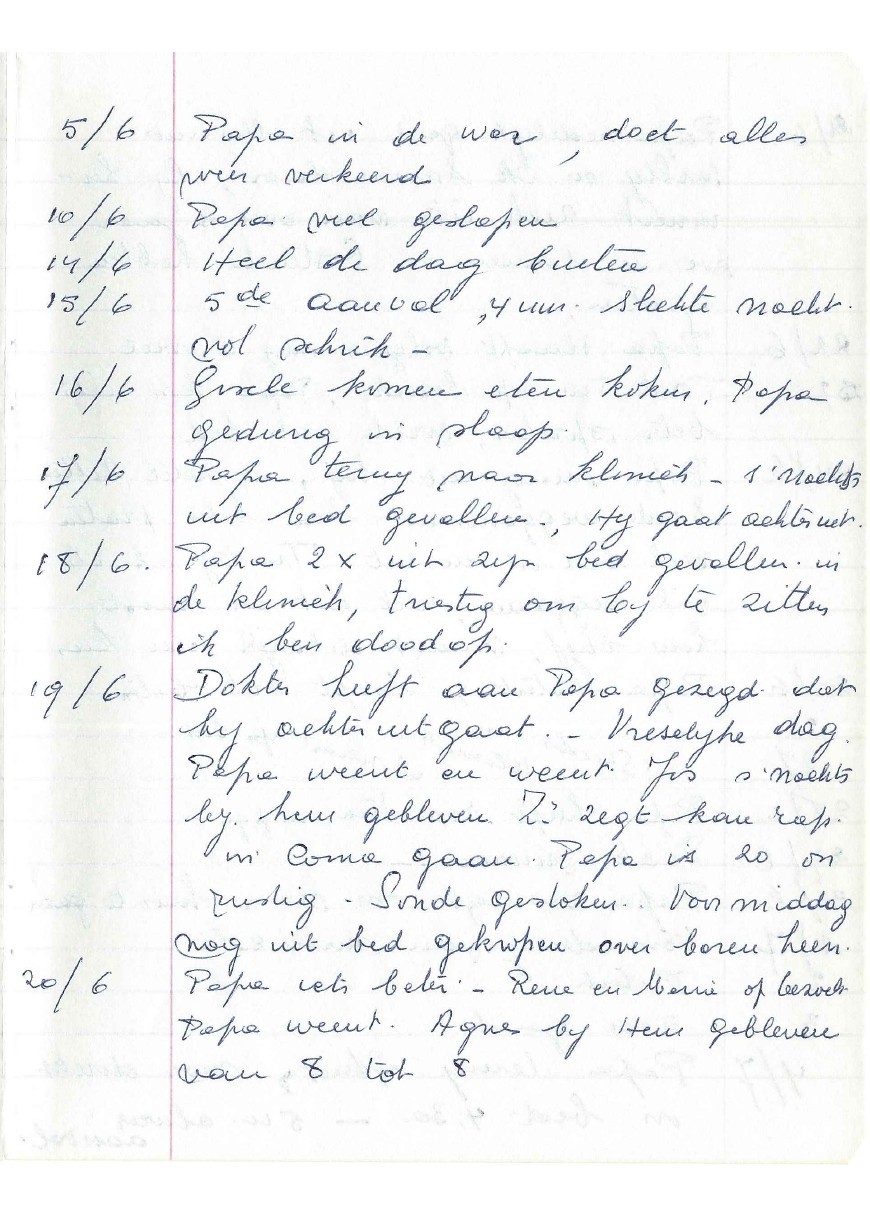 5/6 Papa in de war, doet alles
weer verkeerd
10/6 Papa veel geslapen
14/6 Heel de dag buiten
15/6 5de aanval, 4 uur. Slechte nacht.
vol schrik -
16/6 Gisele komen eten koken. Papa
gedurig in slaap.
17/6 Papa terug naar kliniek - s'nachts
uit bed gevallen., Hy gaat achteruit.
18/6. Papa 2 x uit zijn bed gevallen. in
de kliniek, triestig om by te zitten
ik ben doodop.
19/6 Dokter heeft aan Papa gezegd. dat
hy achteruitgaat. - Vreselyke dag.
Papa weent en weent. s'nachts
by. hem gebleven Zi zegt kan rap.
in Coma gaan. Papa is zo on
rustig - Sonde gestoken. Voormiddag
nog uit bed gekropen over baren heen.
20/6 Papa iets beter. - Rene en op bezoek
Papa weent. Agnes by Hem gebleven
van 8 tot 8